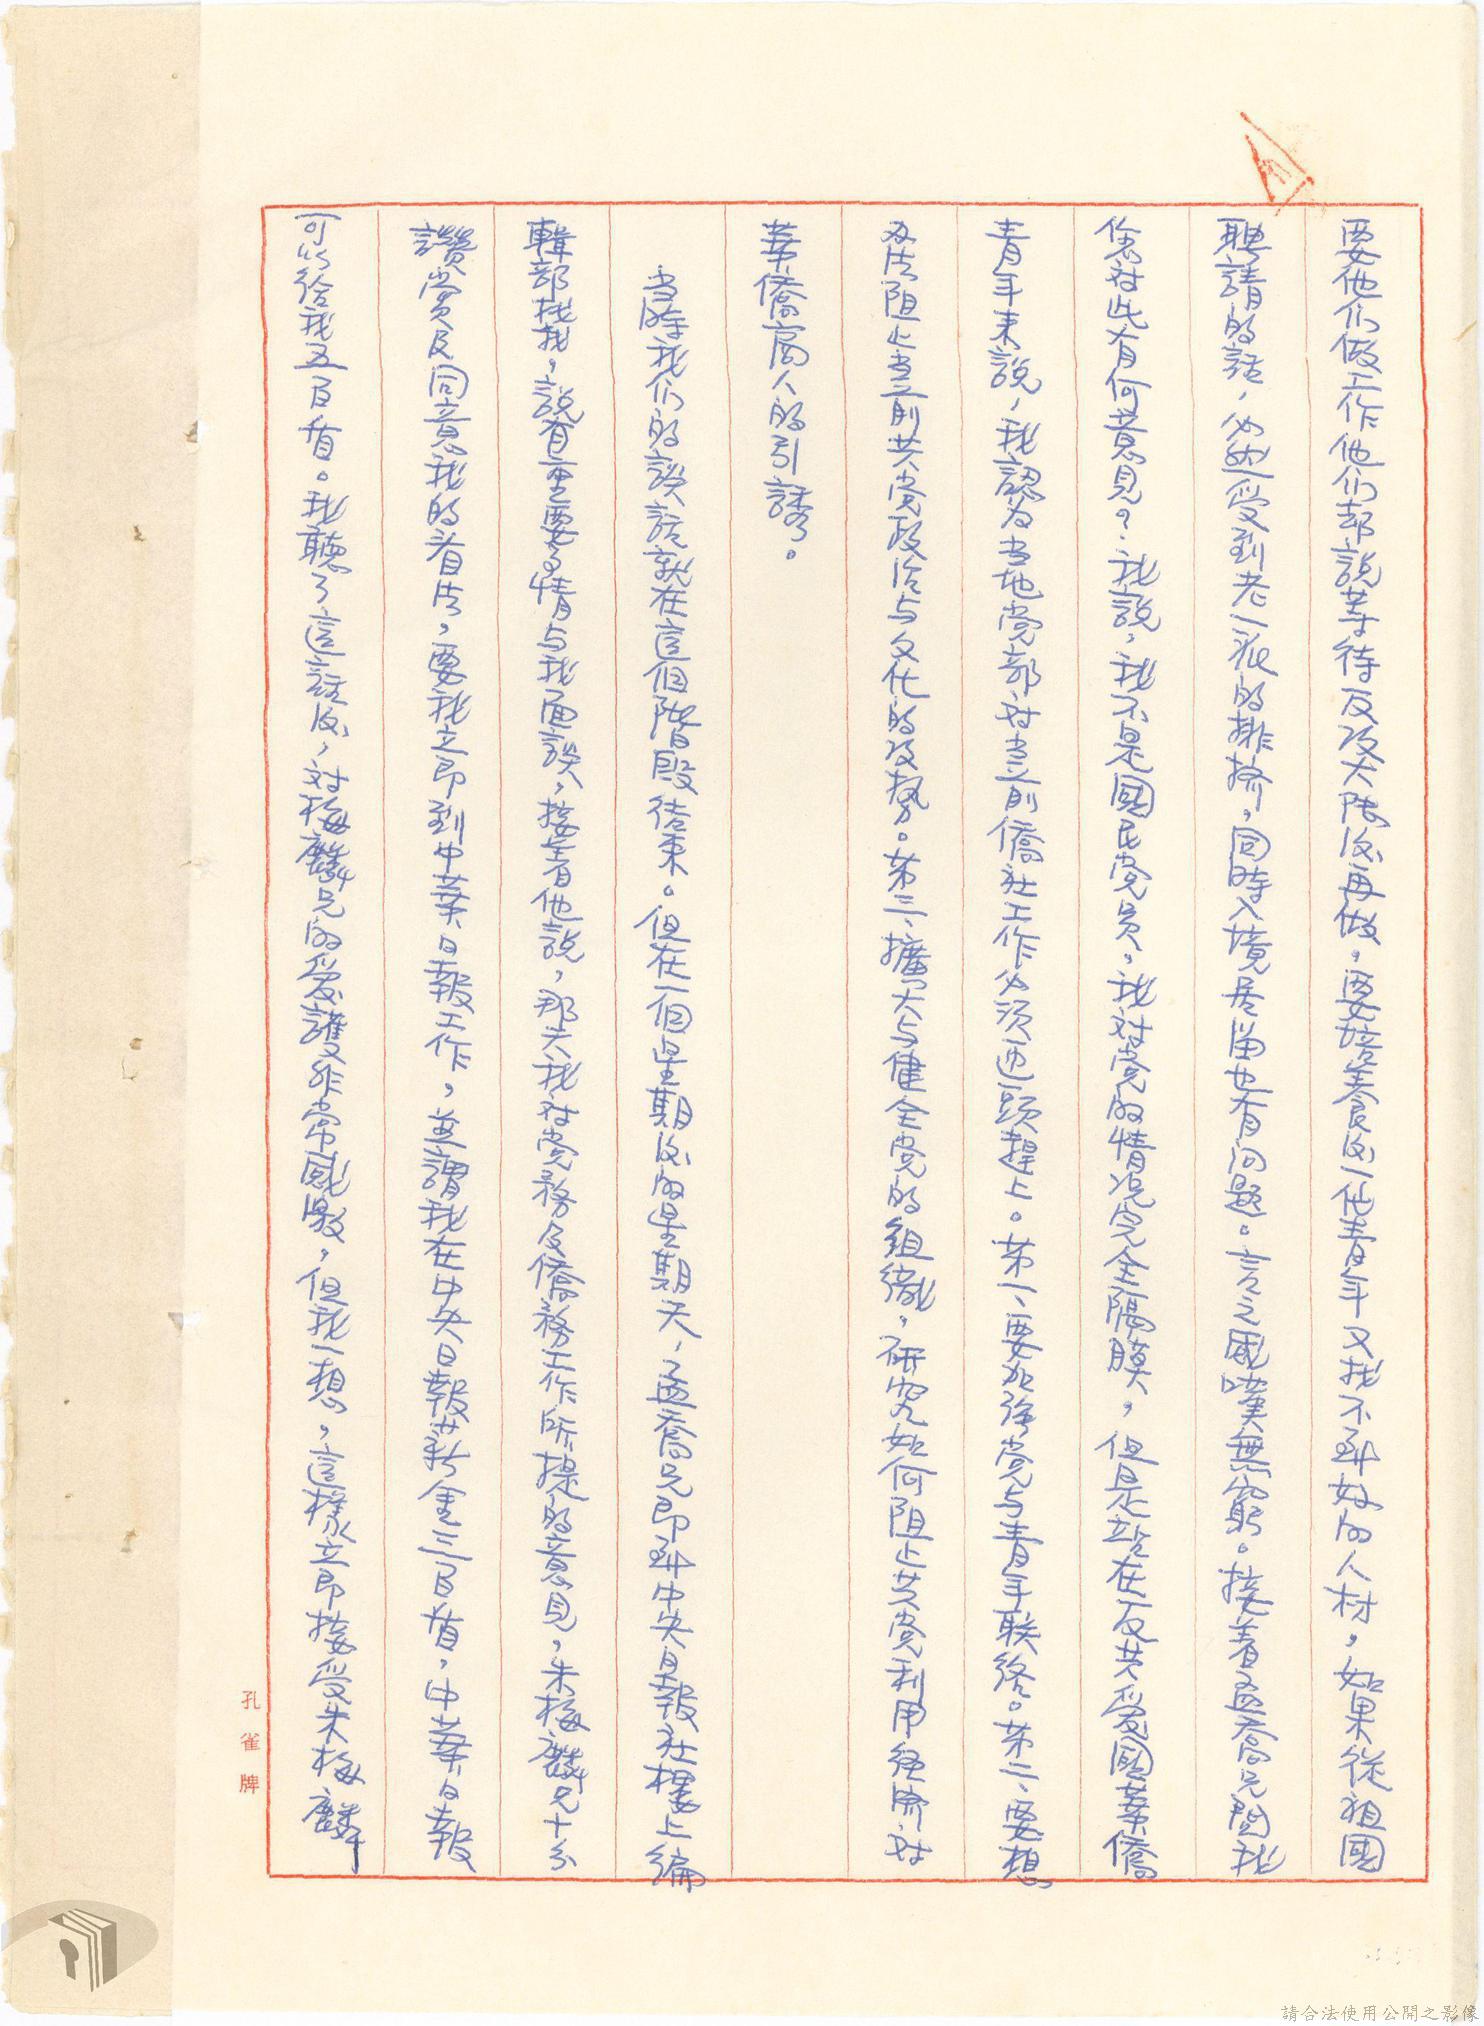 要他们做工作他们却説等待反攻大陆后再做，要培養后一代青年又找不到好的人材，如果從祖國
聘請的話，必然受到老一派的排擠，同時入境居留也有问题。言之感嘆無窮。接着孟喬兄問我
您对此有何意見？我説，我不是國民党员，我对党的情况完全隔膜，但是站在反共爱國華僑
青年来説，我認为当地党部对当前僑社工作必须迎頭趕上。第一、要加强党与青年联络。第二、要想
办法阻止当前共党政治与文化的攻势。第三、擴大与健全党的組織，研究如何阻止共党利用经濟对
華僑商人的引誘。
当時我们的談話就在這個階段结束。但在一個星期后的星期天，孟喬兄即到中央日報社樓上編
輯部找我，説有重要事情与我面談，接着他説，那天我对党務及僑務工作所提的意見，朱梅麟兄十分
讚賞及同意我的看法，要我立即到中華日報工作，並謂我在中央日報薪金三百盾，中華日報
可以给我五百盾。我聽了這話后，对梅麟兄的爱護非常感激，但我一想，這樣立即接受朱梅麟
孔雀牌
請合法使用公開之影像